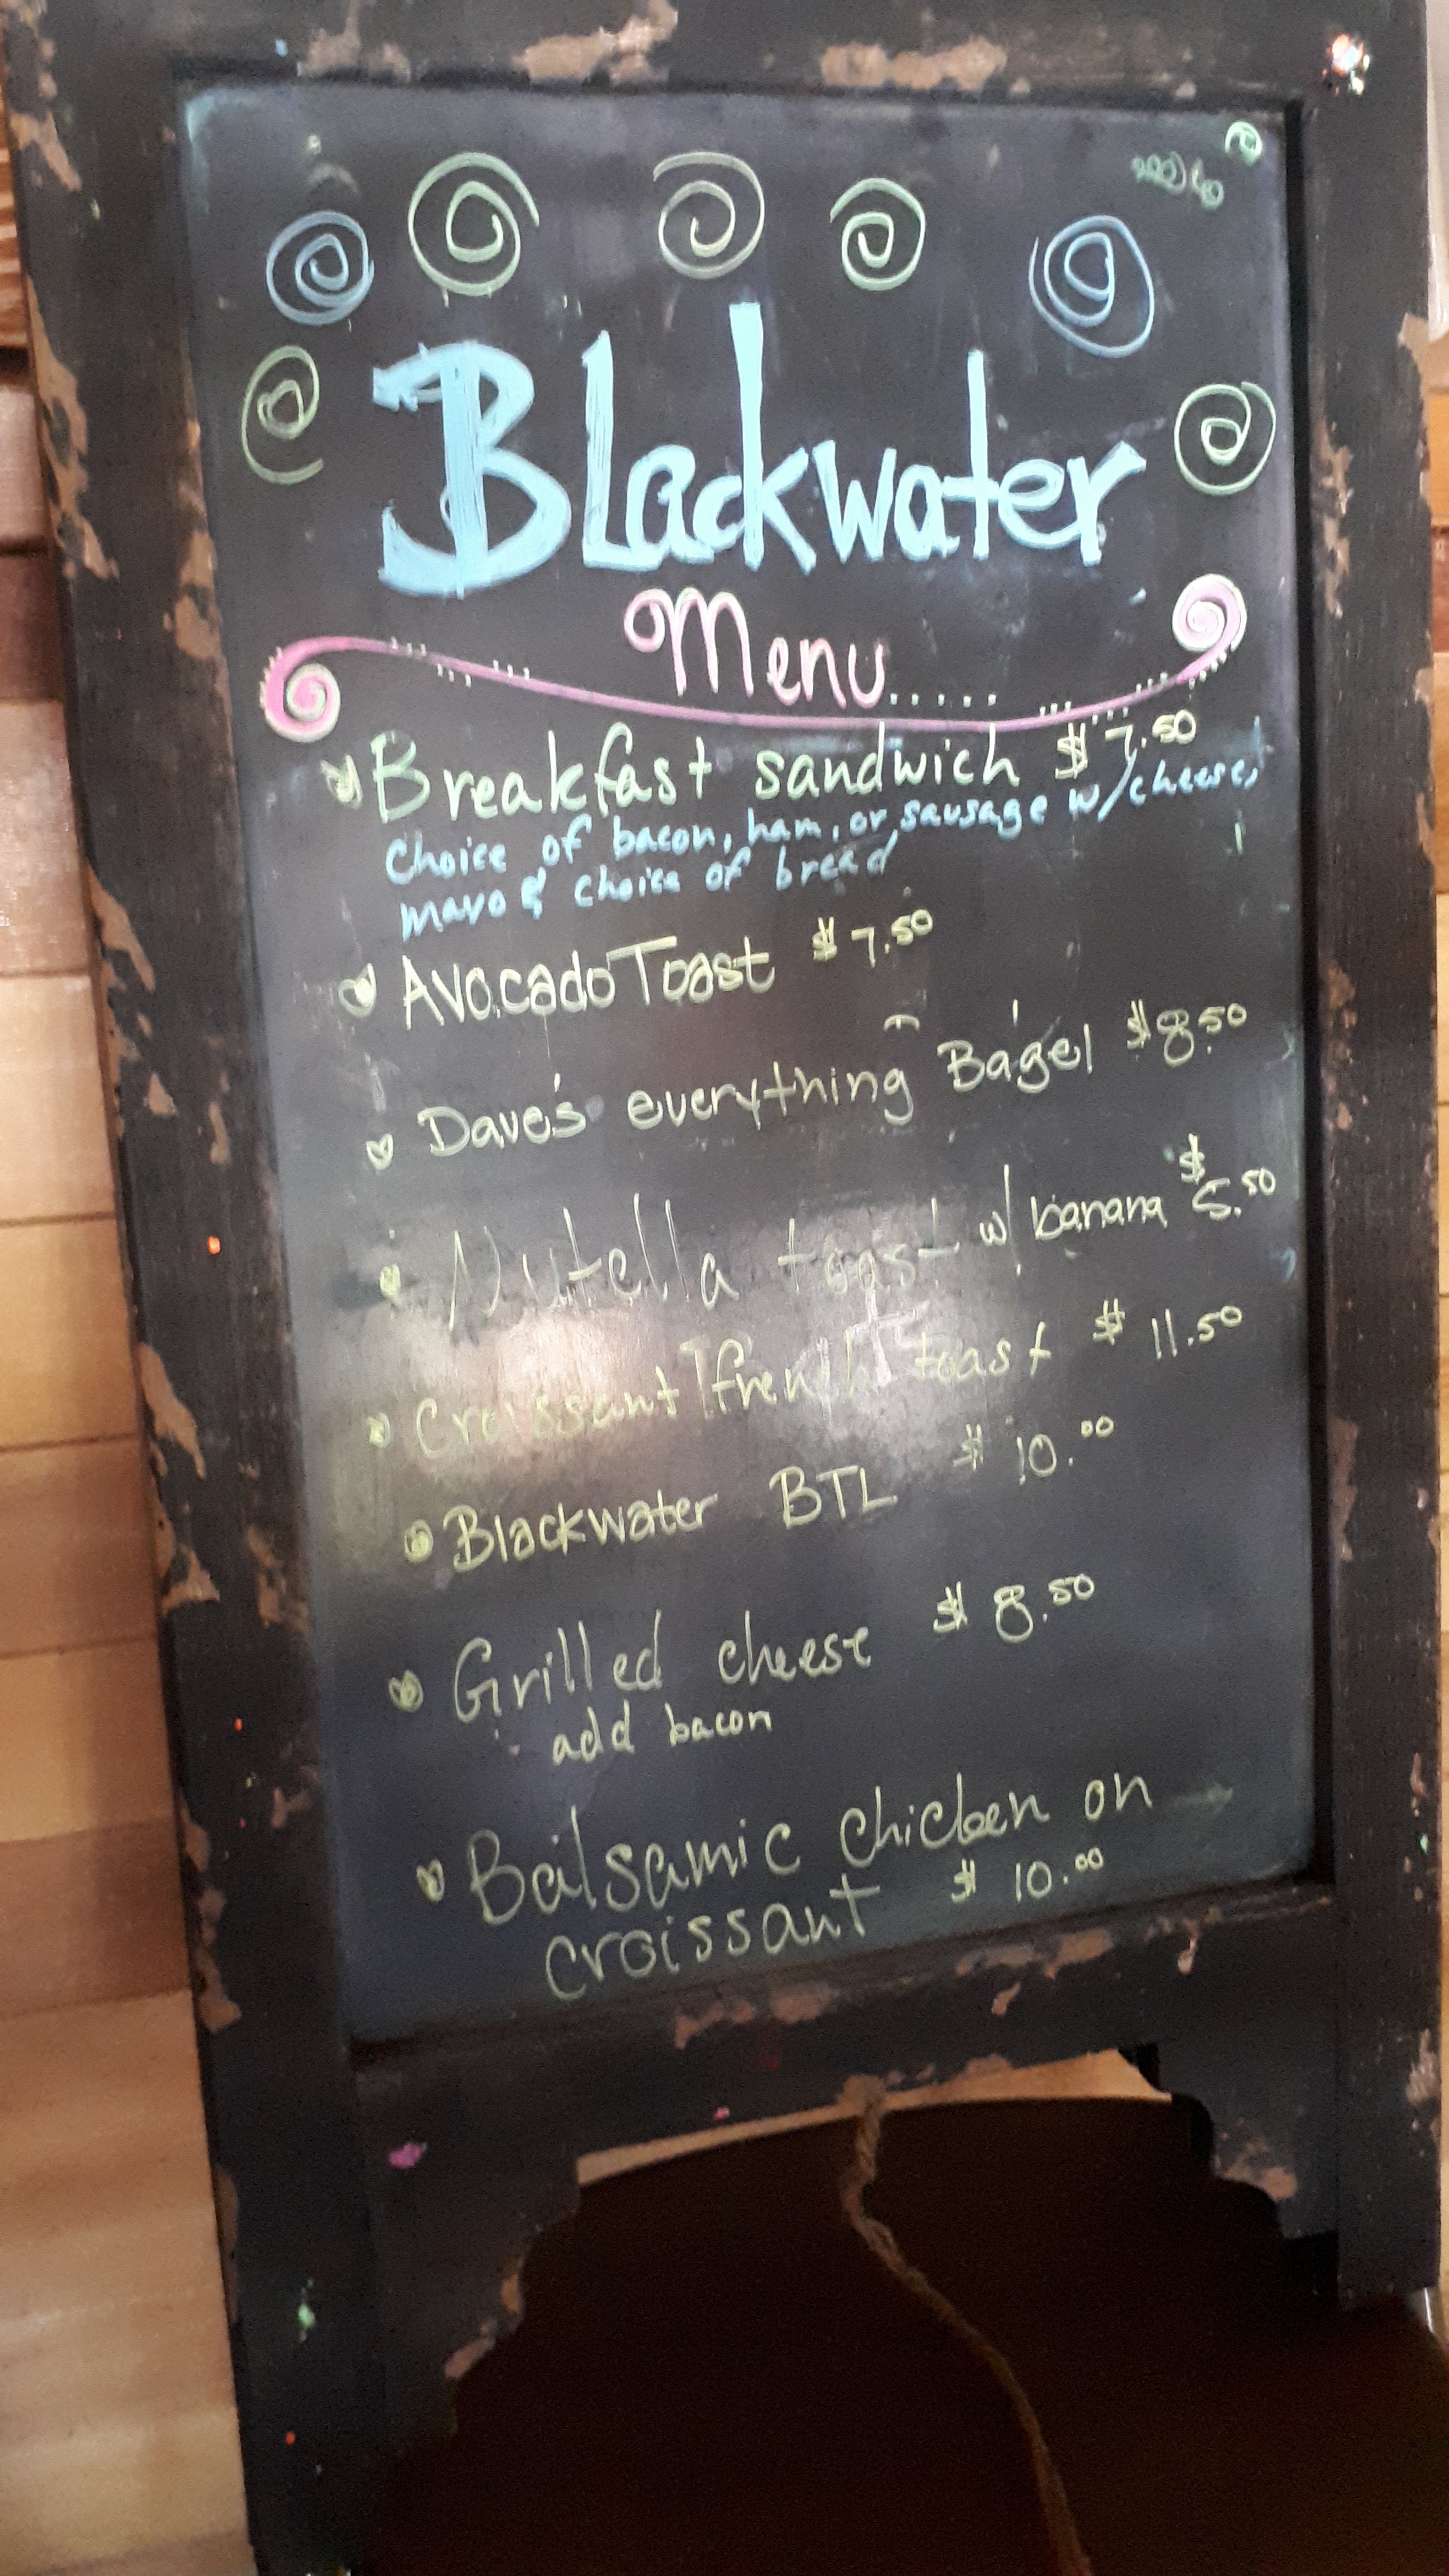 Blackwater
Menu.....
Breakfast sandwich $7.50
Choice of bacon, ham, or sausage w/cheese,
mayo & choice of bread
Avocado Toast $7.50
Dave's everything Bagel $8.50
Nutella toast w/ banana $5.50
Croissant french toast $11.50
Blackwater BTL $10.00
Grilled cheese $8.50
add bacon
Balsamic chicken on
croissant $10.00